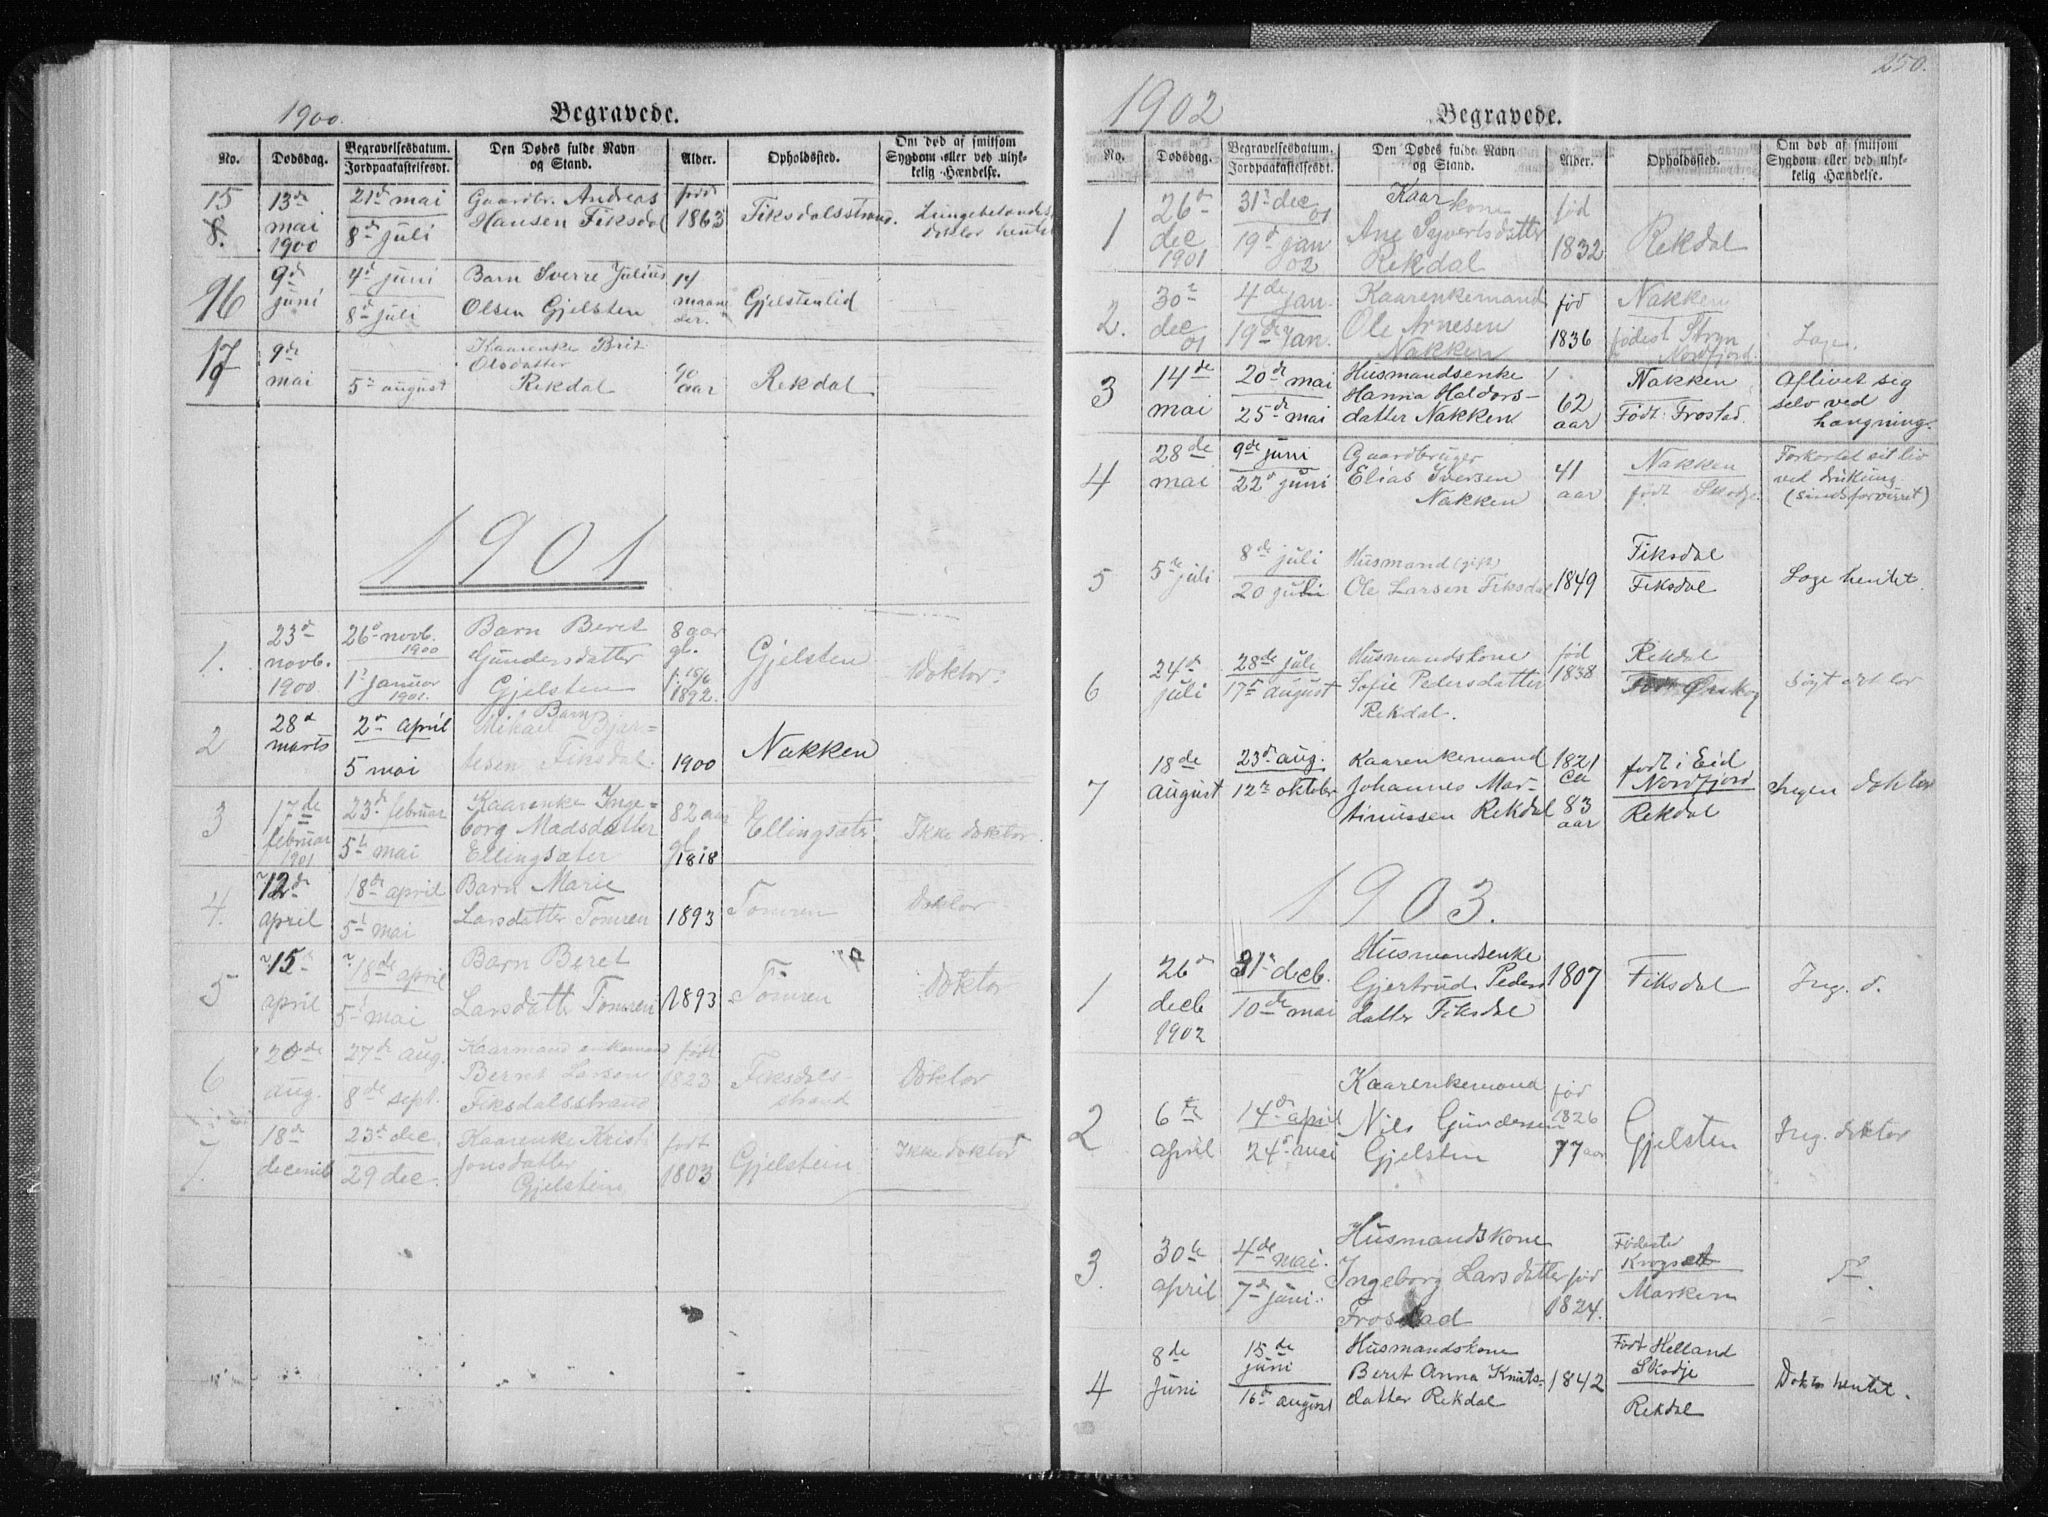 1900.
Begravede.
No.
Dødsdag.
Begravelsesdatum.
Jordpaakastelsesdt.
Den Dødes fulde Navn
og Stand.
Alder.
Opholdssted.
Om død af smitsom
Sygdom eller ved ulyk-
kelig Hændelse.
15
8.
13de
mai
1900
21de mai
8de juli
Gaardbr. Andreas
Hansen Fiksdal
født
1863
Fiksdalsstrand.
doktor hentet
16
9de
juni
4d juni
8d juli
Barn Sverre Julius
Olsen Gjelsten
14
maane
der.
Gjelstenlid
17
9de
mai
5te august
Kaarenke Brit
Olsdatter
Rekdal
90
aar
Rekdal
1901
1.
23d
novb.
1900
26d novb.
1900
1t januar
1901.
Barn Beret
Gundersdatter
Gjelsten
8 aar
gl.
f. 15/6
1892.
Gjelsten
Doktor.
2
28d
marts
2den april
5 mai
Barn
Mikael Bjar-
tesen Fiksdal.
1900
Nakken
3
17de
februar
1901
23d februar
5te mai
Kaarenke Inge-
borg Madsdatter
Ellingsæter
82 aar
gl.
1818
Ellingsæter
Ikke doktor.
4.
12de
april
18de april
5t mai
Barn Marie
Larsdatter Tomren
1893
Tomren
Doktor
5
15
april
18de april
5t mai
Barn Beret
Larsdatter Tomren
1893
Tomren
Doktor
6
20de
aug.
27de aug.
8de sept.
Kaarmand enkemand
Bernt Larsen
Fiksdalsstrand
født
1823
Fiksdals-
strand
Doktor
7.
18de
decemb
23d dec.
29 dec.
Kaarenke Krist
Jonsdatter
Gjelsten
født
1803
Gjelstein
Ikke doktor
250.
1902
Begravede.
No.
Dødsdag.
Begravelsesdatum.
Jordpaakastelsesdt.
Den Dødes fulde Navn
og Stand.
Alder.
Opholdssted.
Om død af smitsom
Sygdom eller ved ulyk-
kelig Hændelse.
1
26d
dec
1901
31t dec
01
19d jan
02
Kaar
kone
Ane Syvertsdatter
Rekdal
fød
1832
Rekdal
2.
30te
dec
01
4de jan.
19de Jan.
Kaarenkemand
Ole Arnesen
Nakken
fød
1836
Nakken
fødest. Stryn
Nordfjord.
Læge.
3
14de
mai
20de mai
25de mai
Husmandsenke
Hanna Haldors-
datter Nakken
62
aar
Nakken
Født: Frostad.
Aflivet sig
selv ved
hængning.
4
28de
mai
9de juni
22d juni
Gaardbruger
Elias Iversen
Nakken
41
aar
Nakken
født Skodje
Forkortet sit liv
ved drukning
(sindsforvirret)
5
5te
juli
8de juli
20 juli
Husmand (gift)
Ole Larsen Fiksdal
1849
Fiksdal
Fiksdal
Læge hentet.
6
24d
juli
28de juli
17de august
Husmandskone
Sofie Pedersdatter
Rekdal.
fød
1838
Rekdal
Født Ørskog
Søgt doktor
7
18de
august
23de aug.
12te oktober
Kaarenkemand
Johannes Mar-
tinussen Rekdal
1821
ca
83
aar
født i Eid
Nordfjord
Rekdal
Ingen doktor
1903.
1
26d
decb
1902
31t decb.
10de mai
Husmandsenke
Gjertrud Peders
datter Fiksdal
1807
Fiksdal
Ing. d.
2
6te
april
14de april
24d mai
Kaarenkemand
Nils Gundersen
Gjelsten
fød
1826
77 aar
Gjelsten
Ing. doktor
3.
30te
april
4de mai.
7de juni.
Husmandskone
Ingeborg Larsdatter
Frostad
fød
1824.
Fødested
Krogsæt
Marken
4
8de
juni
15de
juni
16d august
Husmandskone
Beret Anna Knuts-
datter Rekdal
1842
Født Helland
Skodje
Rekdal
Doktor hentet.